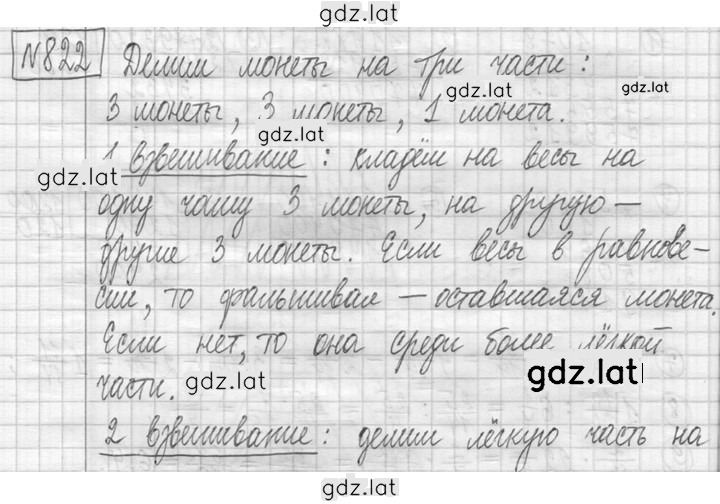 gdz.lat
№822 Делим монеты на три части :
gdz.lat gdz.lat
3 монеты, 3 монеты, 1 монета.
gdz.lat
1 взвешивание : кладём на весы на
gdz.lat
одну чашу 3 монеты, на другую –
другие 3 монеты. Если весы в равнове-
сии, то фальшивая – оставшаяся монета.
Если нет, то она среди более лёгкой
gdz.lat gdz.lat
части.
2 взвешивание : делим лёгкую часть на
gdz.lat